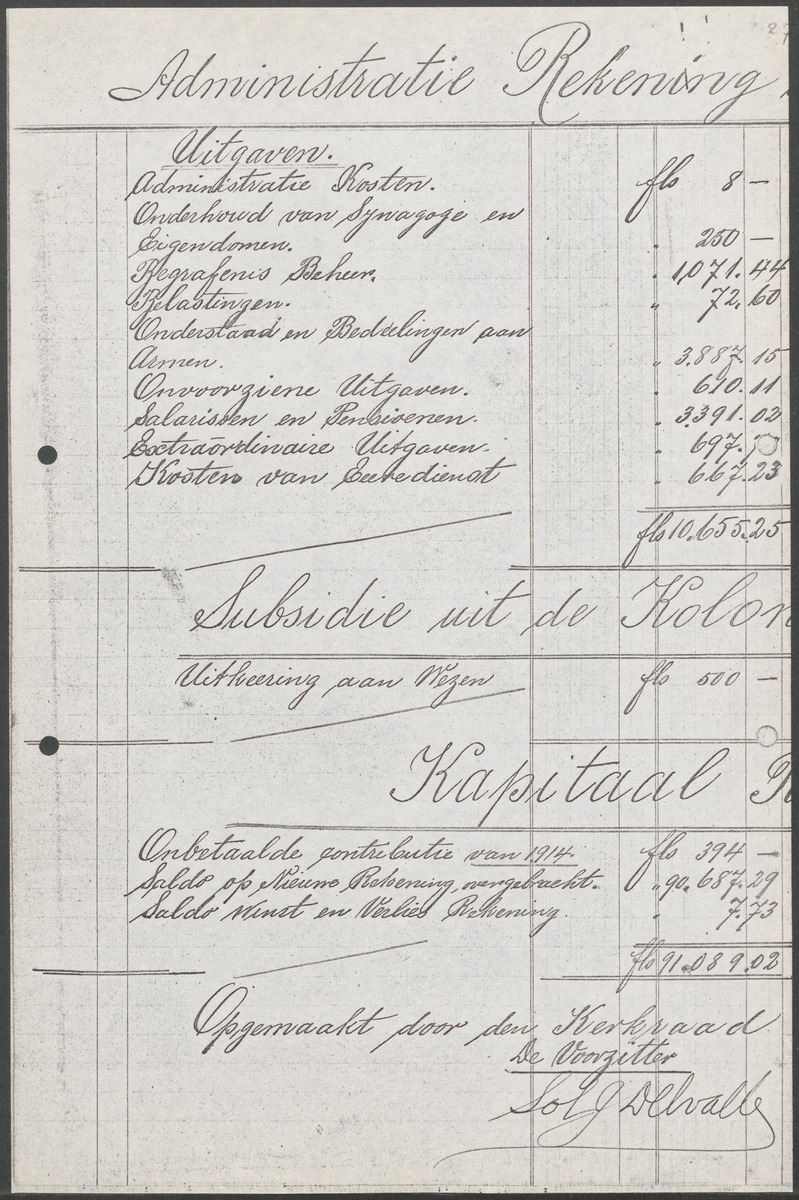 27
Administratie Rekening
Uitgaven.
Administratie Kosten. fls 8 —
Onderhoud van Synagoge en
Eigendomen. " 250 —
Begrafenis Beheer. " 1,071.44
Belastingen. " 72.60
Onderstaad en Bedeelingen aan
Armen. " 3.887.15
Onvoorziene Uitgaven. " 610.11
Salarissen en Pensioenen. " 3391.02
Extraördinaire Uitgaven. " 697.
Kosten van Eeredienst " 667.23
fls 10.655.25
Subsidie uit de Kolon
Uitkeering aan Wezen fls 500 —
Kapitaal R
Onbetaalde contributie van 1914 fls 394 —
Saldo op Nieuwe Rekening overgebracht. " 90.687.29
Saldo Winst en Verlies Rekening. " 7.73
fls 91.089.02
Opgemaakt door den Kerkraad
De Voorzitter
Sol J Delvalle